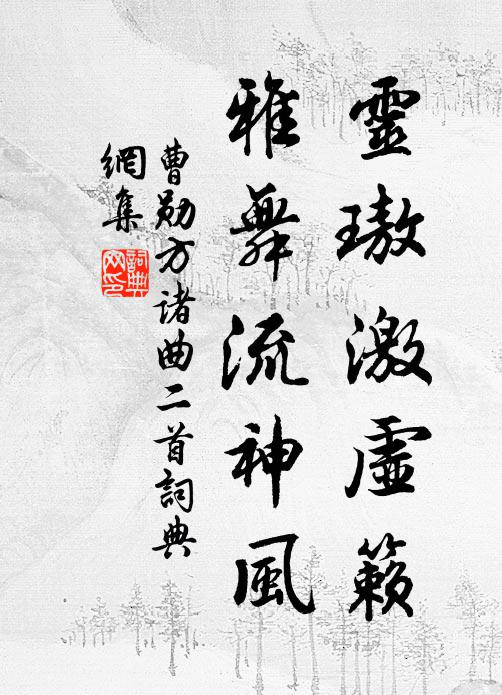 靈璈激虛籟
雅舞流神風
曹勛方諸曲二首詞典
網集
詞典
网印